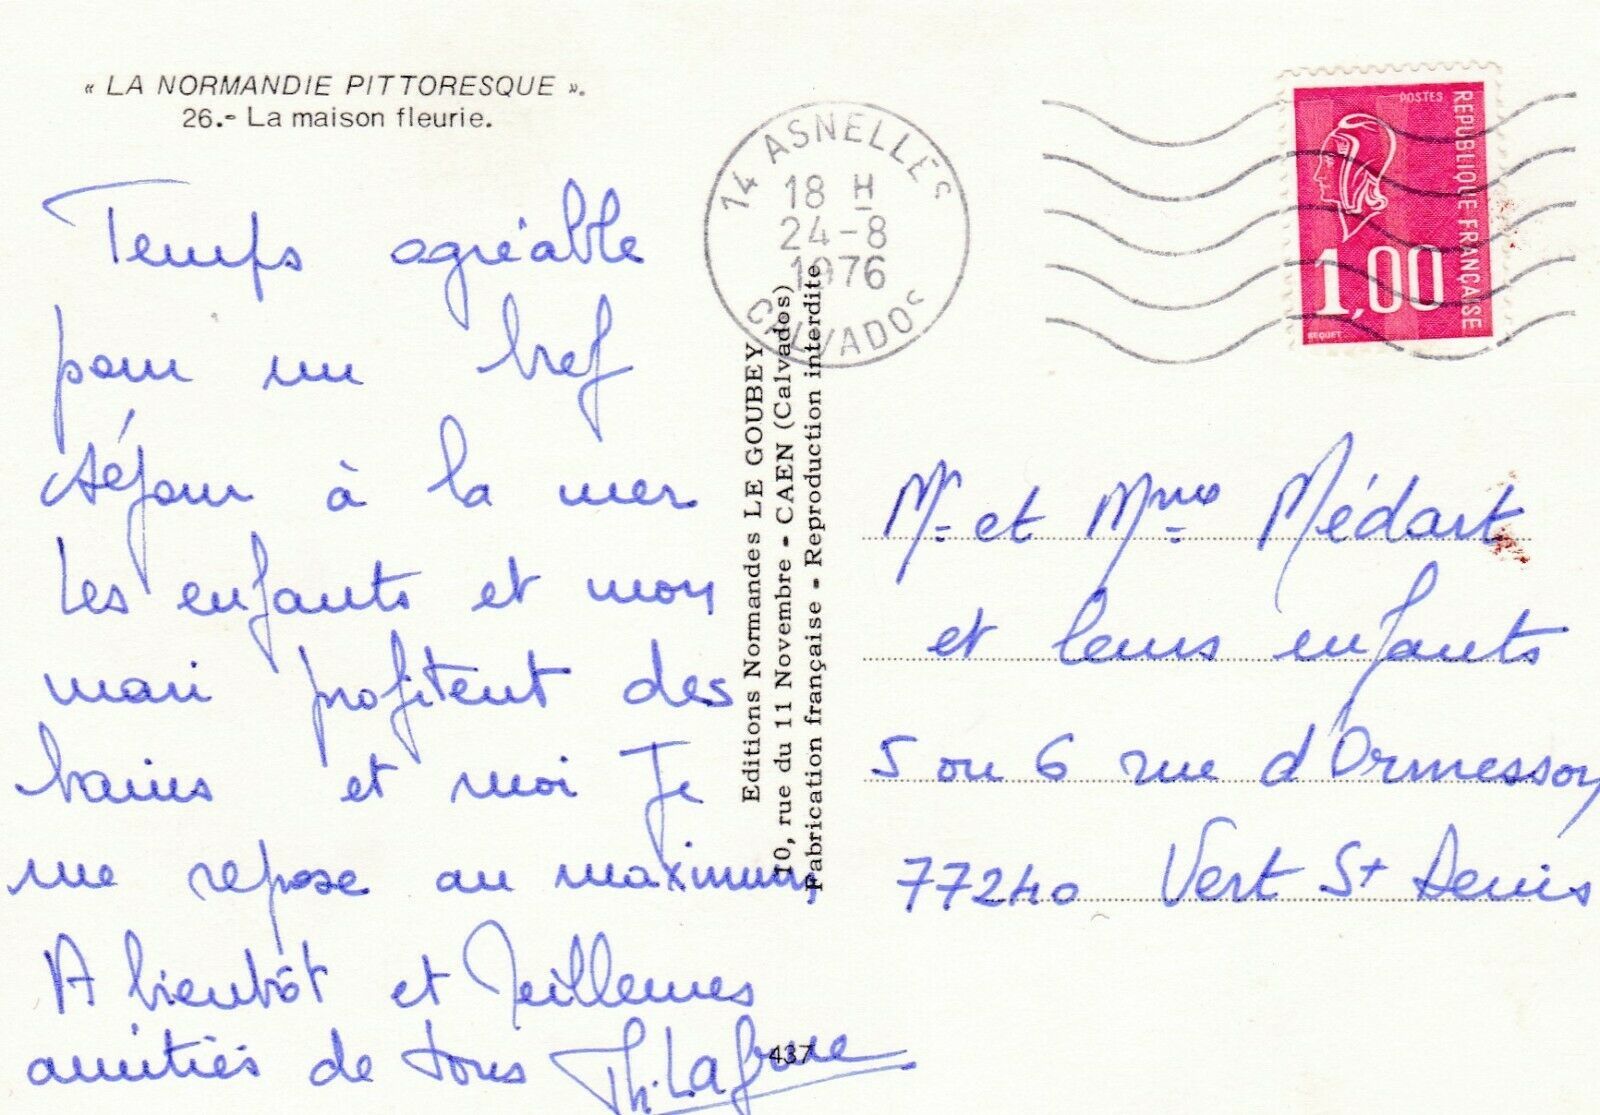 « LA NORMANDIE PITTORESQUE ».
26.- La maison fleurie.
Temps agréable
pour un bref
séjour à la mer
Les enfants et mon
mari profitent des
bains et moi Je
me repose au maximum
A bientôt et Meilleures
amitiés de tous
14 ASNELLES
18 H
24-8
1976
CALVADOS
Editions Normandes LE GOUBEY
10, rue du 11 Novembre - CAEN (Calvados)
Fabrication française - Reproduction interdite
437
POSTES
REPUBLIQUE FRANÇAISE
1,00
BEQUET
Mr et Mme Médart
et leurs enfants
5 ou 6 rue d'Ormesson
77240 Vert St Denis